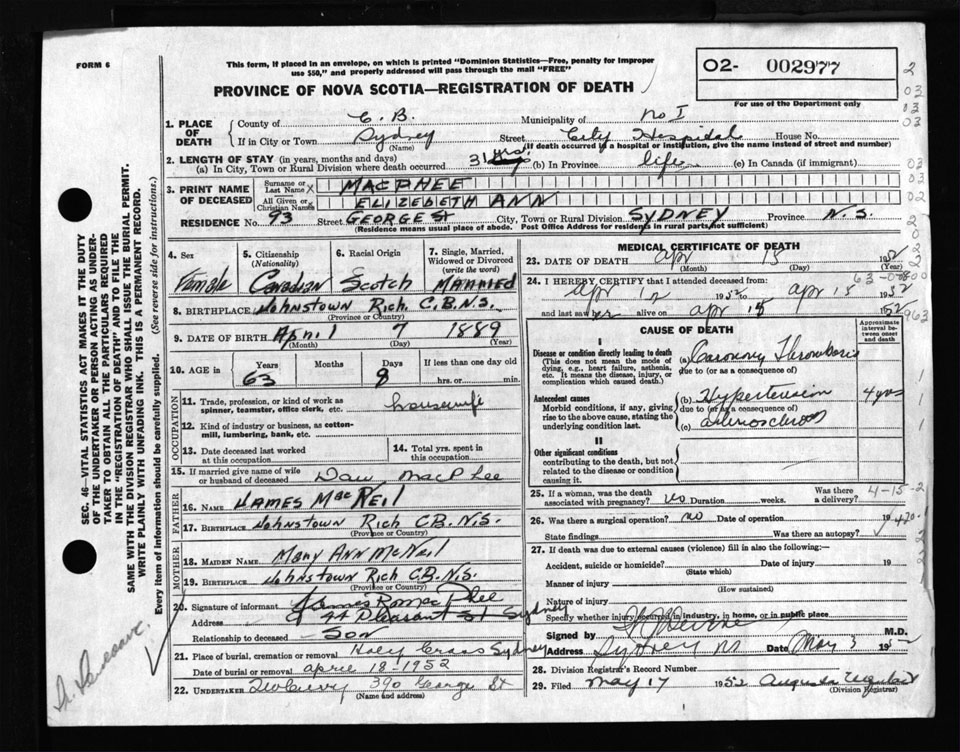 FORM 6
This form, if placed in an envelope, on which is printed "Dominion Statistics—Free, penalty for improper
use $50," and properly addressed will pass through the mail "FREE"
PROVINCE OF NOVA SCOTIA—REGISTRATION OF DEATH
O2- 002977
For use of the Department only
1. PLACE OF DEATH
County of C. B. Municipality of No I
If in City or Town Sydney Street City Hospital House No.
(Name) (If death occurred in a hospital or institution, give the name instead of street and number)
2. LENGTH OF STAY (in years, months and days)
(a) In City, Town or Rural Division where death occurred 31 yrs. (b) In Province life (c) In Canada (if immigrant)
3. PRINT NAME OF DECEASED
Surname or Last Name X MACPHEE
All Given or Christian Names ELIZEBETH ANN
RESIDENCE No. 93 Street GEORGE St City, Town or Rural Division SYDNEY Province N.S.
(Residence means usual place of abode. Post Office Address for residents in rural parts not sufficient)
4. Sex
Female
5. Citizenship (Nationality)
Canadian
6. Racial Origin
Scotch
7. Single, Married, Widowed or Divorced (write the word)
MARRIED
8. BIRTHPLACE Johnstown Rich. C.B.N.S.
(Province or Country)
9. DATE OF BIRTH April 7 1889
(Month) (Day) (Year)
10. AGE in Years 63 Months Days 8 If less than one day old hrs. or min.
OCCUPATION
11. Trade, profession, or kind of work as spinner, teamster, office clerk, etc. housewife
12. Kind of industry or business, as cotton-mill, lumbering, bank, etc.
13. Date deceased last worked at this occupation
14. Total yrs. spent in this occupation
15. If married give name of wife or husband of deceased Dan MacPhee
FATHER
16. NAME JAMES MacNeil
17. BIRTHPLACE Johnstown Rich C.B.N.S.
(Province or Country)
MOTHER
18. MAIDEN NAME Mary Ann McNeil
19. BIRTHPLACE Johnstown Rich C.B.N.S.
(Province or Country)
20. Signature of informant James R. MacPhee
Address Pleasant St Sydney
Relationship to deceased Son
21. Place of burial, cremation or removal Holy Cross Sydney
Date of burial or removal april 18-1952
22. UNDERTAKER 390 George St
(Name and address)
MEDICAL CERTIFICATE OF DEATH
23. DATE OF DEATH apr 15 1952
(Month) (Day) (Year)
24. I HEREBY CERTIFY that I attended deceased from:
apr 12 1952 to apr 15 1952
and last saw her alive on apr 15 1952
CAUSE OF DEATH
Approximate interval between onset and death
I
Disease or condition directly leading to death (a) Coronary Thrombosis
(This does not mean the mode of dying, e.g., heart failure, asthenia, etc. It means the disease, injury, or complication which caused death.)
due to (or as a consequence of)
Antecedent causes (b) Hypertension 4 yrs
Morbid conditions, if any, giving rise to the above cause, stating the underlying condition last.
due to (or as a consequence of)
(c) arteriosclerosis
II
Other significant conditions
contributing to the death, but not related to the disease or condition causing it.
25. If a woman, was the death associated with pregnancy? no Duration weeks. Was there a delivery?
4-15-2
26. Was there a surgical operation? no Date of operation 19
State findings Was there an autopsy?
27. If death was due to external causes (violence) fill in also the following:—
Accident, suicide or homicide? Date of injury 19
(State which)
Manner of injury
(How sustained)
Nature of injury
Specify whether injury occurred in industry, in home, or in public place
Signed by M.D.
Address Sydney NS Date May 3 1952
28. Division Registrar's Record Number
29. Filed May 17 1952 Augusta
(Division Registrar)
SEC. 46—VITAL STATISTICS ACT MAKES IT THE DUTY
OF THE UNDERTAKER OR PERSON ACTING AS UNDER-
TAKER TO OBTAIN ALL THE PARTICULARS REQUIRED
IN THE "REGISTRATION OF DEATH" AND TO FILE THE
SAME WITH THE DIVISION REGISTRAR WHO SHALL ISSUE THE BURIAL PERMIT.
WRITE PLAINLY WITH UNFADING INK. THIS IS A PERMANENT RECORD.
Every item of information should be carefully supplied. (See reverse side for instructions.)